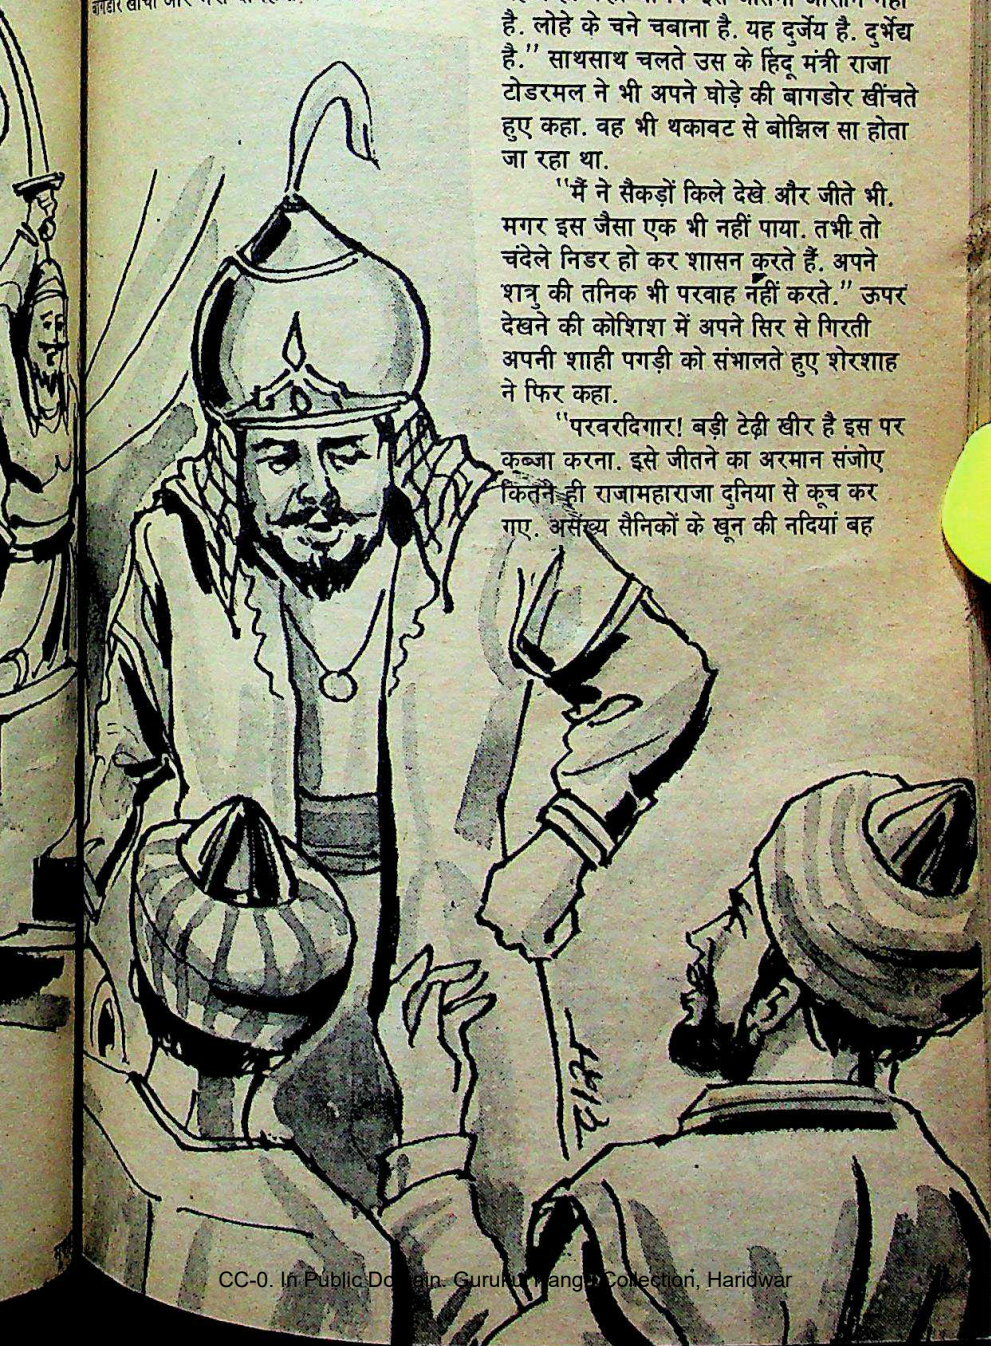 है. लोहे के चने चबाना है. यह दुर्जेय है. दुर्भेद्य
है.” साथसाथ चलते उस के हिंदू मंत्री राजा
टोडरमल ने भी अपने घोड़े की बागडोर खींचते
हुए कहा. वह भी थकावट से बोझिल सा होता
जा रहा था.
“मैं ने सैकड़ों किले देखे और जीते भी.
मगर इस जैसा एक भी नहीं पाया. तभी तो
चंदेले निडर हो कर शासन करते हैं. अपने
शत्रु की तनिक भी परवाह नहीं करते.” ऊपर
देखने की कोशिश में अपने सिर से गिरती
अपनी शाही पगड़ी को संभालते हुए शेरशाह
ने फिर कहा.
“परवरदिगार! बड़ी टेढ़ी खीर है इस पर
कब्जा करना. इसे जीतने का अरमान संजोए
कितने ही राजामहाराजा दुनिया से कूच कर
गए. असंख्य सैनिकों के खून की नदियां बह
CC-0. In Public Domain. Gurukul Kangri Collection, Haridwar